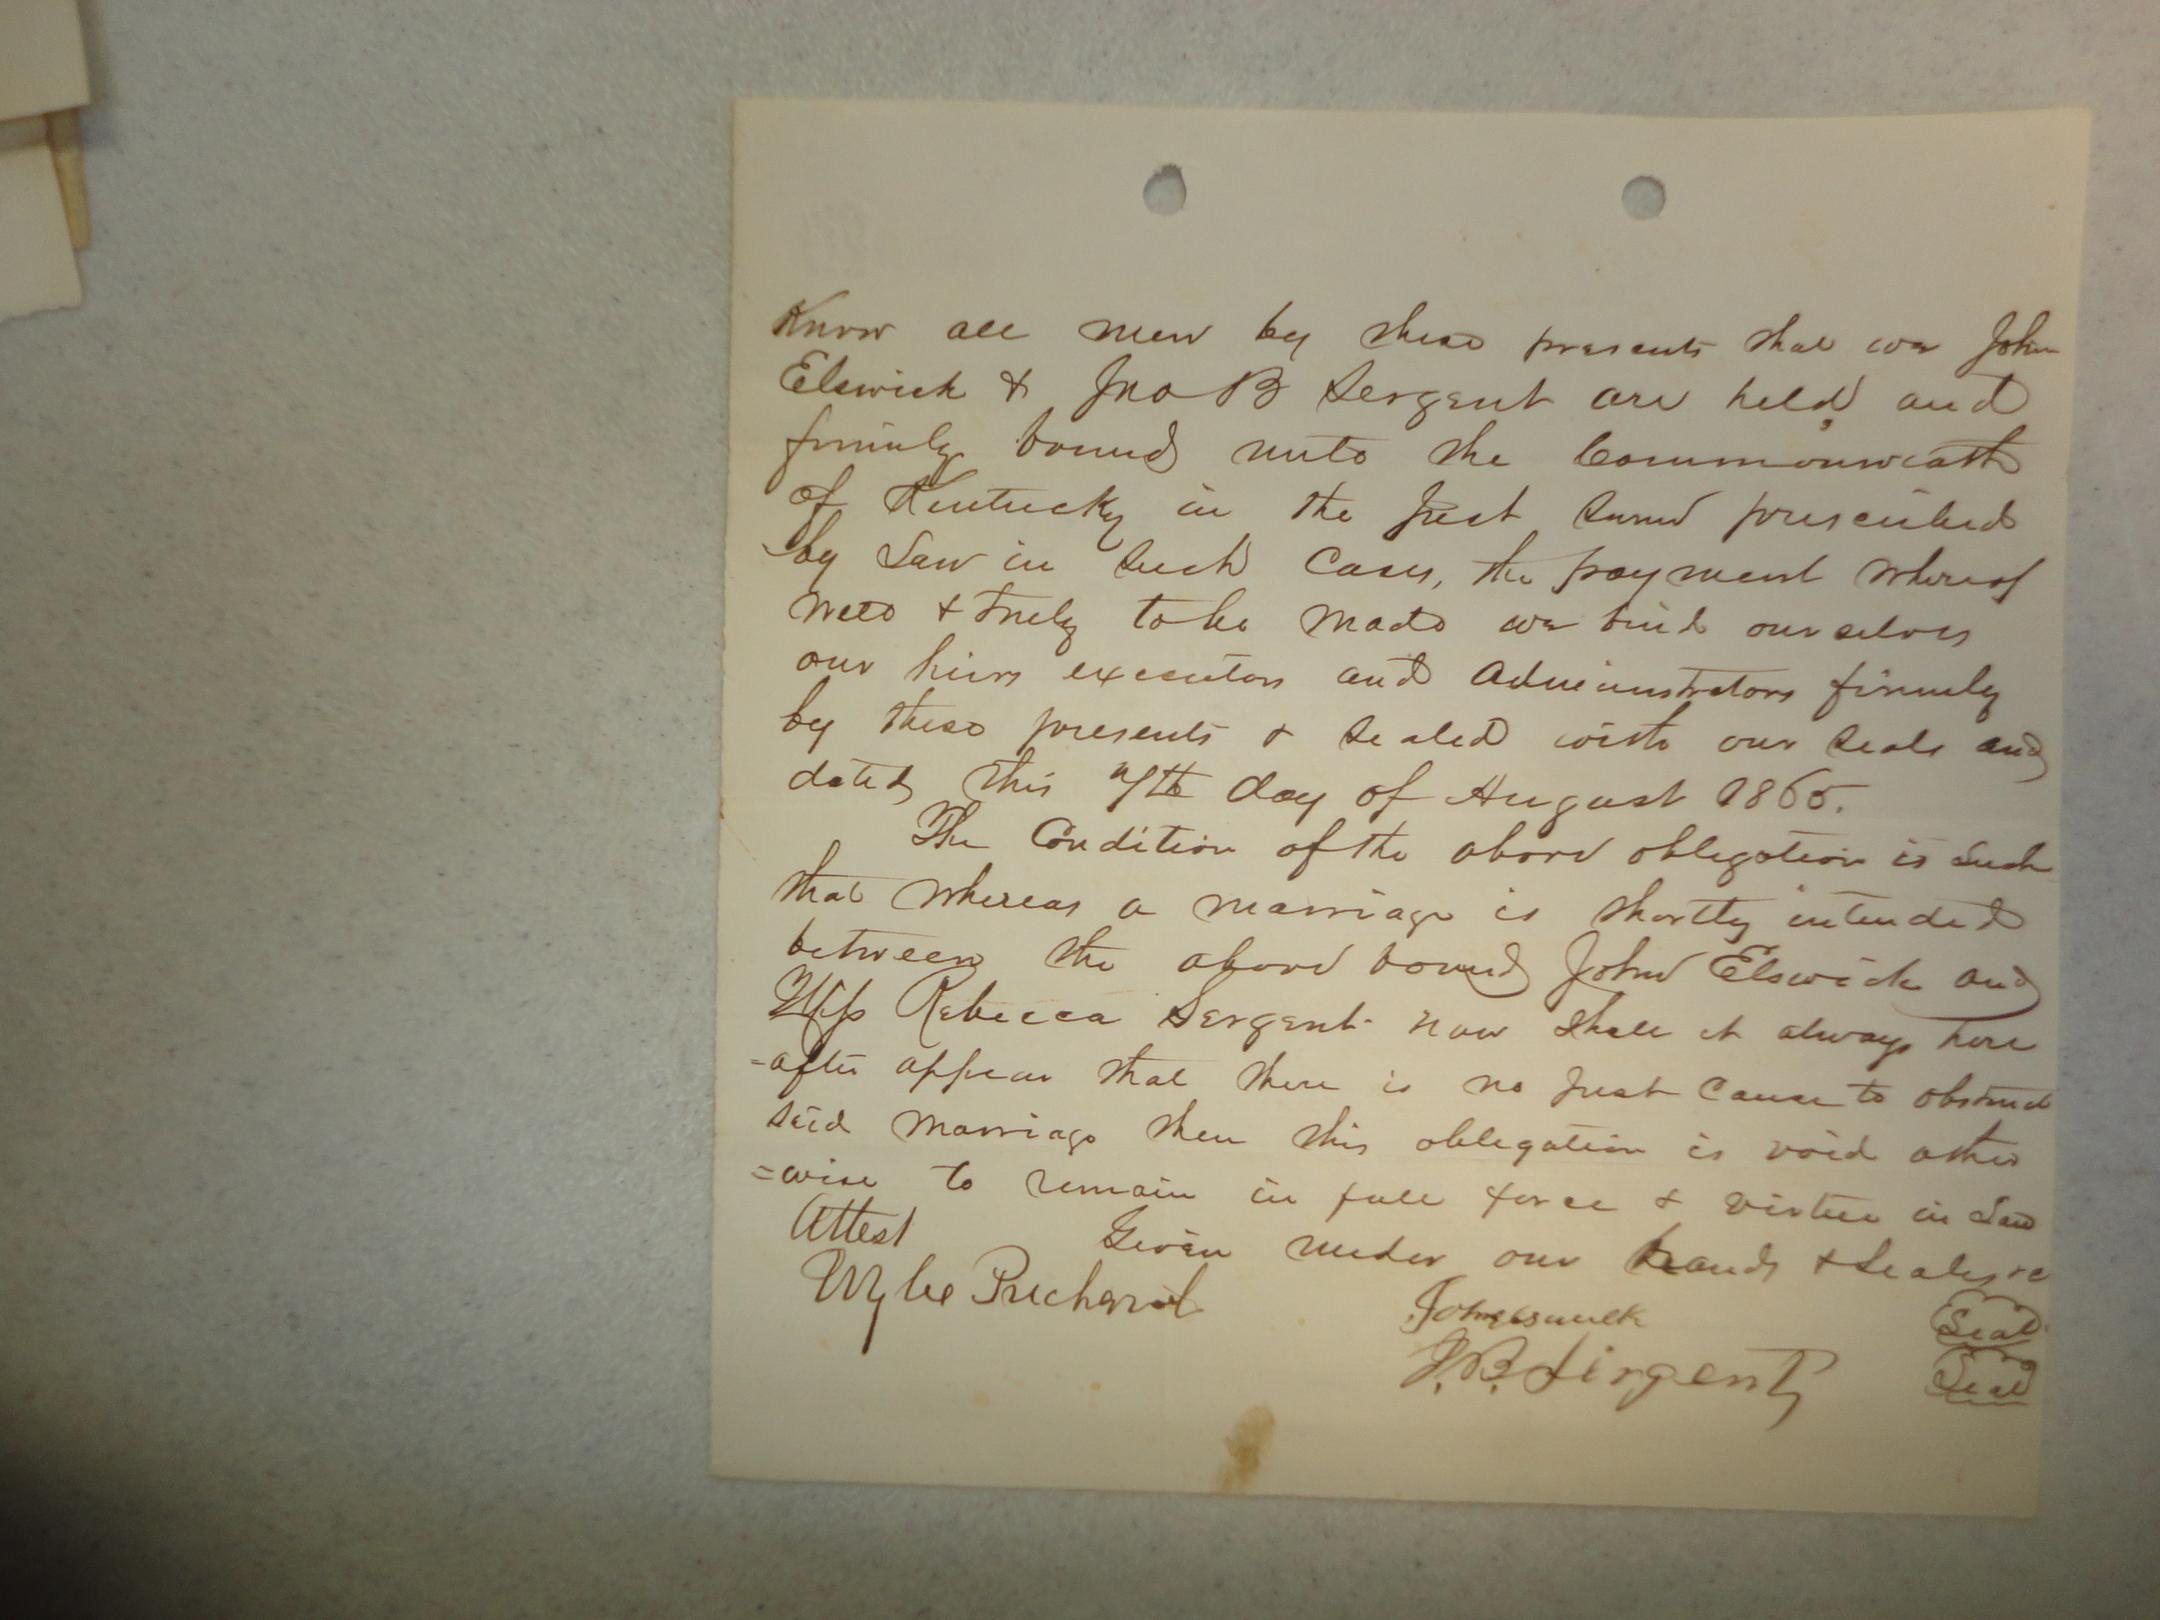 Know all men by these presents that we John
Elswick & Jno B Sergent are held and
firmly bound unto the Commonwealth
of Kentucky in the just sum prescribed
by Law in such Cases, the payment whereof
well & truly to be made we bind ourselves
our heirs executors and Administrators firmly
by these presents & sealed with our seals and
dated this 7th day of August 1865.
The Condition of the above obligation is such
that whereas a marriage is shortly intended
between the above bound John Elswick and
Miss Rebecca Sergent now shall it always here
=after appear that there is no just Cause to obstruct
said marriage then this obligation is void other
=wise to remain in full force & virtue in Law
Attest Given under our hands & seals &c
Wylie Prichard
John Elswick Seal
J. B. Sirgent Seal